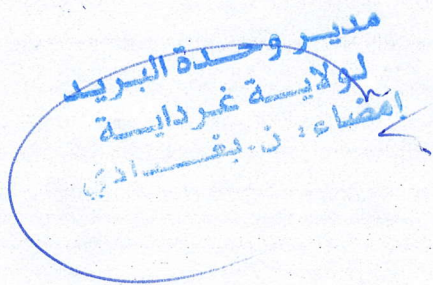 مدير وحدة البريد
لولاية غرداية
إمضاء: ن. بغدادي